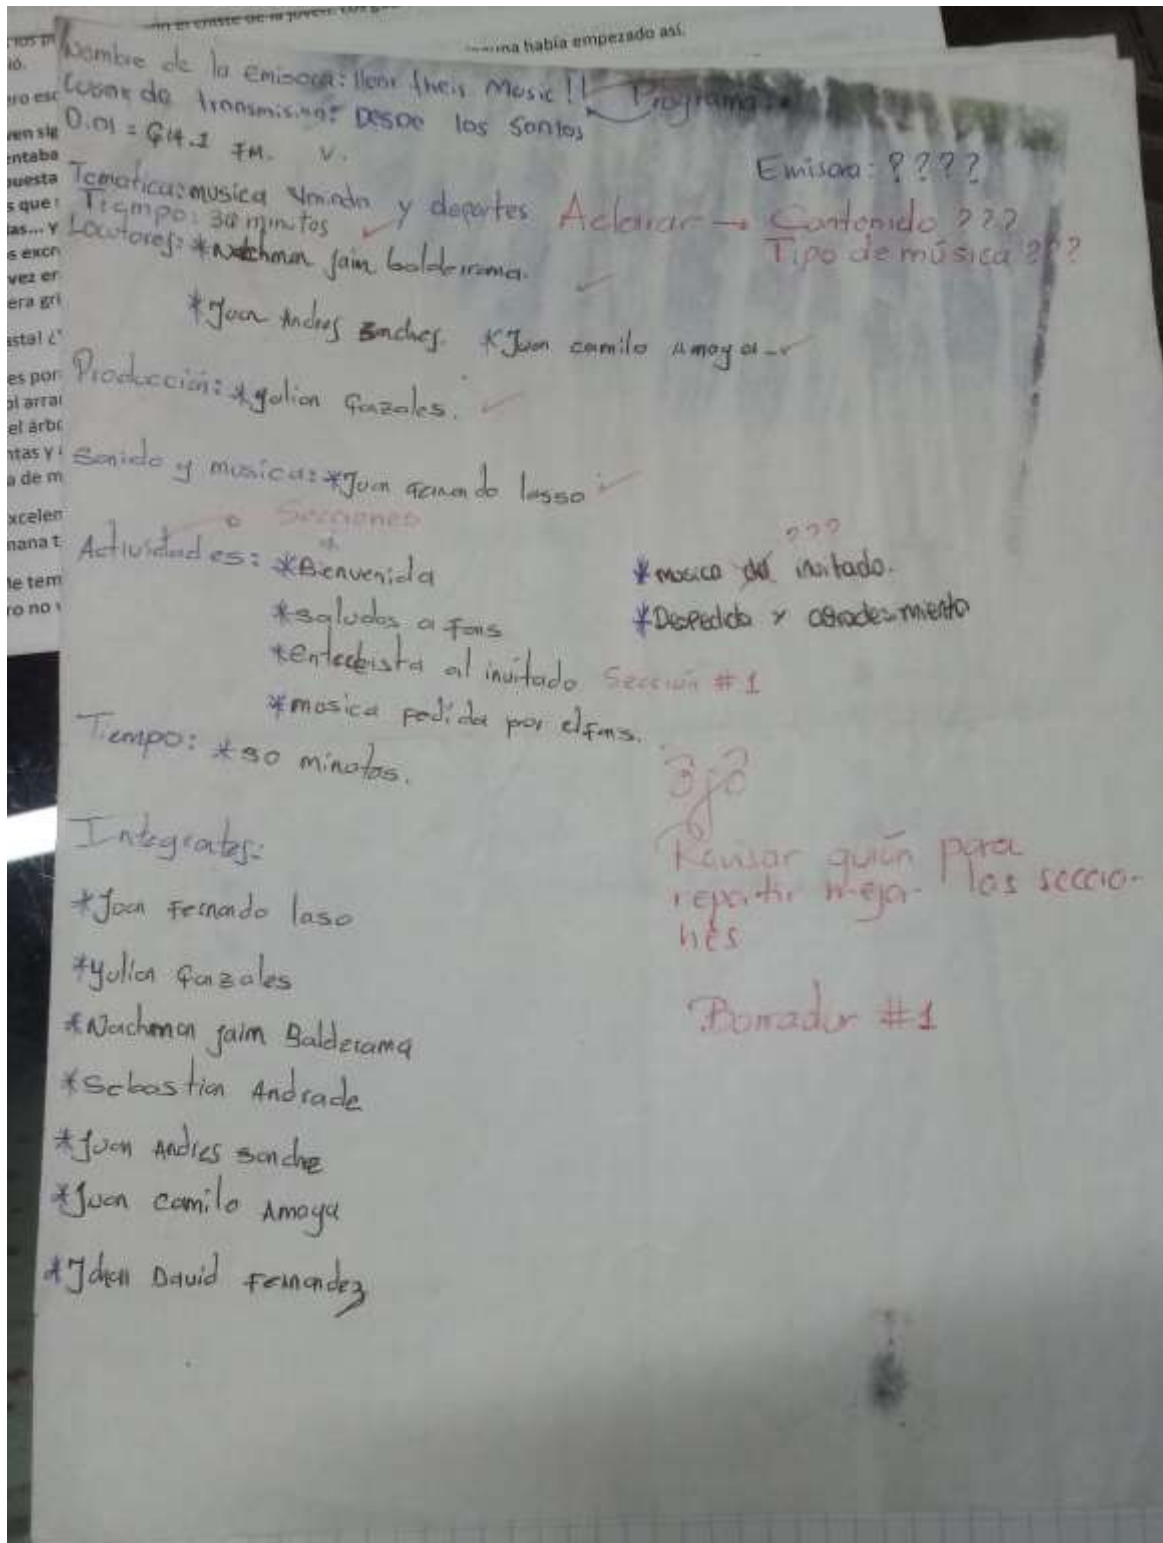 una había empezado así.
Nombre de la emisora: Hear theis Music!! Programa.
de transmision: Desde los santos
FM. V.
Emisora: ????
Tematica: musica y deportes Aclarar → Contenido ???
Tiempo: 30 minutos
Tipo de música ???
Locutores: *Nachman jaim balderrama.
*Juan Andres *Juan camilo Amaya
Producción: *yulian
Sonido y musica: *Juan lasso
Secciones
Actividades: *Bienvenida
*saludos a fans
*entrebista al invitado Sección #1
*mosica pedida por el fans.
???
*mosica del invitado.
*Despedida y
Tiempo: *30 minotos.
Revisar guión para
repartir mejor las seccio-
nes
Borrador #1
Integrates:
*Joan Fernando laso
*yulian Gonzales
*Nachman jaim Balderama
*Sebastian Andrade
*Juan Andres sanche
*Juan camilo Amaya
*Johan David Fernandez